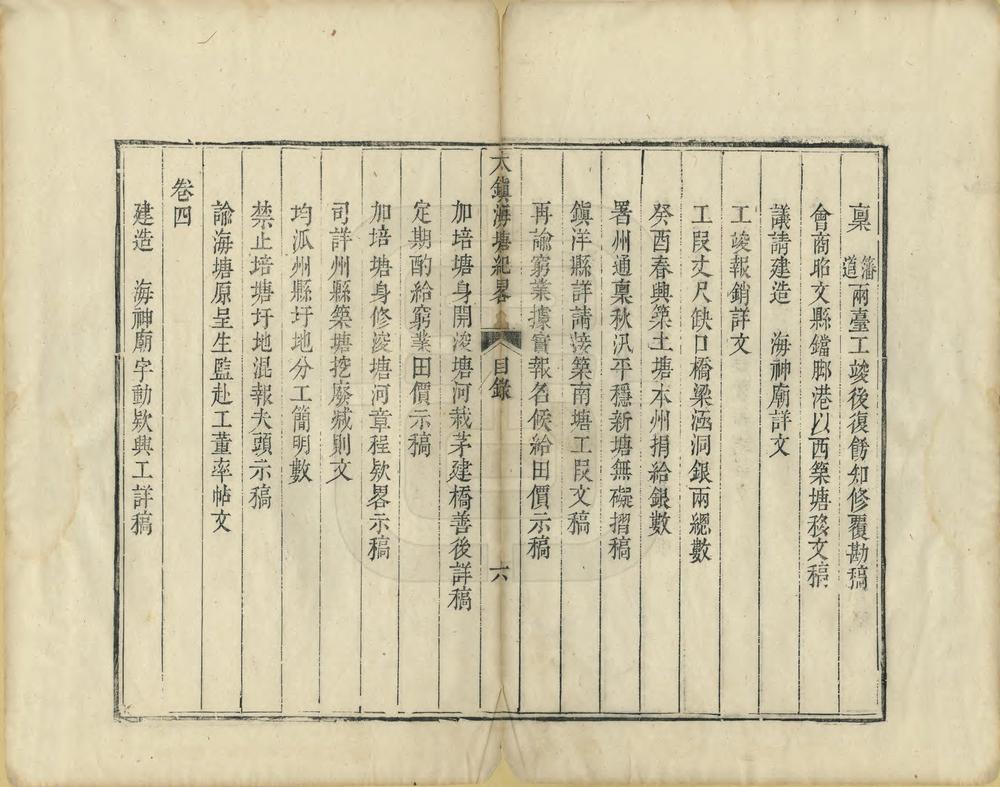 稟藩道兩臺工竣後復飭知修覆勘稿
會商昭文縣鐺脚港以西築塘移文稿
議請建造　海神廟詳文
工竣報銷詳文
工段丈尺缺口橋梁涵洞銀兩總數
癸酉春興築土塘本州捐給銀數
署州通稟秋汛平穩新塘無礙摺稿
鎮洋縣詳請接築南塘工段文稿
再諭窮業據實報名候給田價示稿
太鎮海塘紀畧　目錄　六
加培塘身開浚塘河栽茅建橋善後詳稿
定期酌給窮業田價示稿
加培塘身修浚塘河章程欵畧示稿
司詳州縣築塘挖廢減則文
均泒州縣圩地分工簡明數
禁止培塘圩地混報夫頭示稿
諭海塘原呈生監赴工董率帖文
卷四
建造　海神廟宇動欵興工詳稿